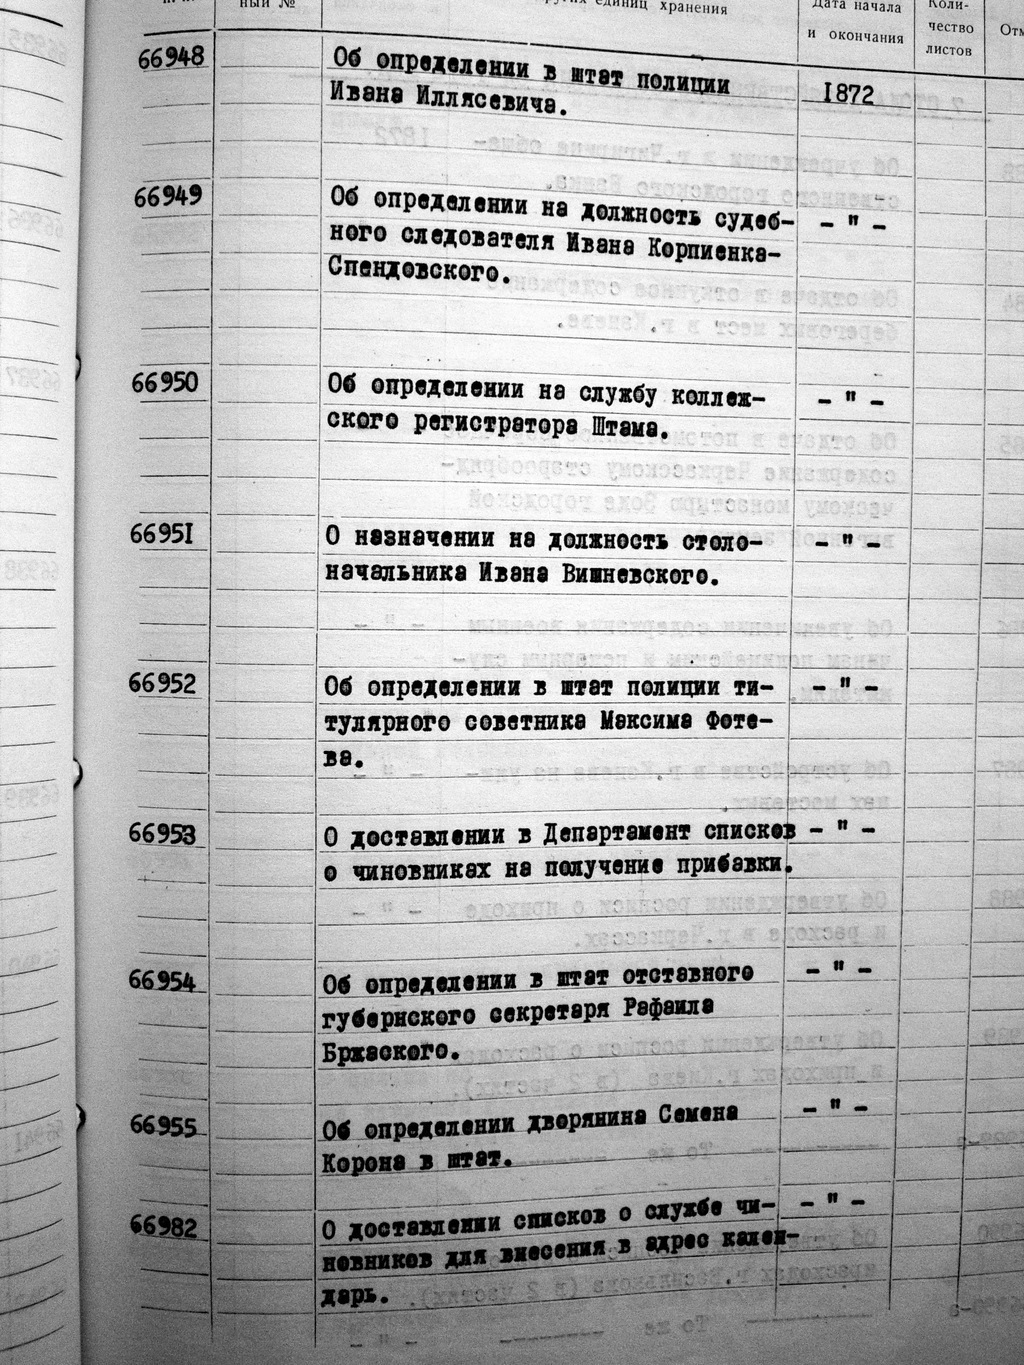 ный №
других единиц хранения
Дата начала
и окончания
Коли-
чество
листов
66948 Об определении в штат полиции
Ивана Иллясевича. 1872
66949 Об определении на должность судеб- - " -
ного следователя Ивана Корпиенка-
Спендовского.
66950 Об определении на службу коллеж- - " -
ского регистратора Штама.
66951 О назначении на должность столо- - " -
начальника Ивана Вишневского.
66952 Об определении в штат полиции ти- - " -
тулярного советника Максима Фоте-
ва.
66953 О доставлении в Департамент списков - " -
о чиновниках на получение прибавки.
66954 Об определении в штат отставного - " -
губернского секретаря Рафаила
Бржаского.
66955 Об определении дворянина Семена - " -
Корона в штат.
66982 О доставлении списков о службе чи- - " -
новников для внесения в адрес кален-
дарь.